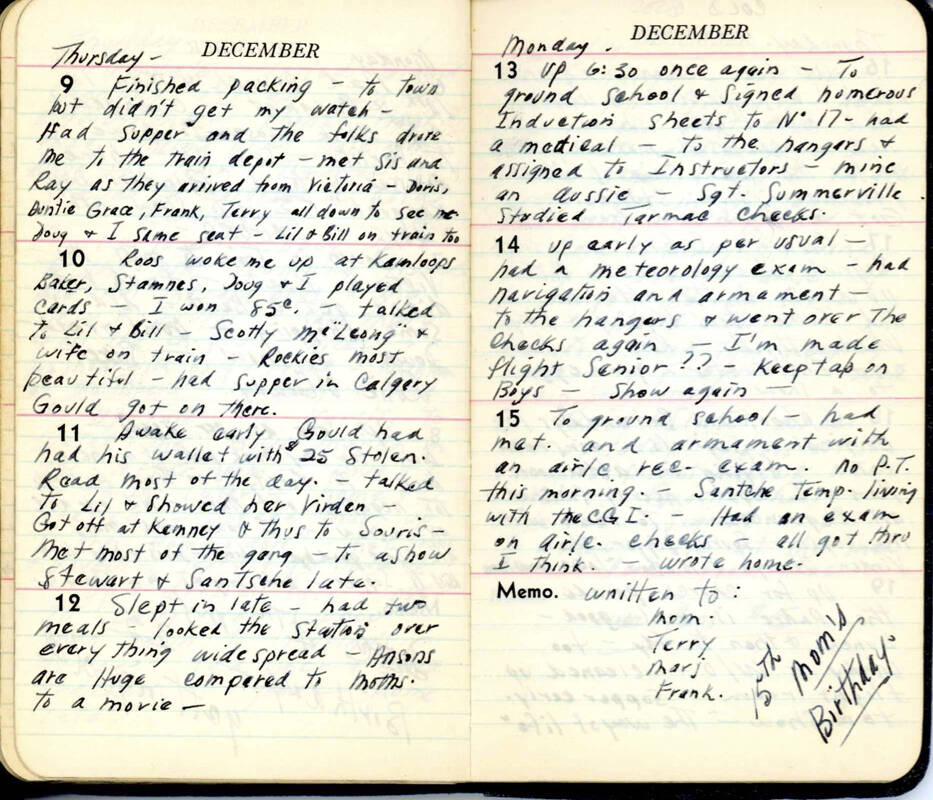 Thursday - DECEMBER
9 Finished packing - to town
but didn't get my watch -
Had supper and the folks drove
me to the train depot - met Sis and
Ray as they arived from Victoria - Doris,
Auntie Grace, Frank, Terry all down to see me
Doug & I same seat - Lil & Bill on train too
10 Roos woke me up at Kamloops
Baker, Stamnes, Doug & I played
cards - I won 85c. - talked
to Lil & Bill - Scotty McLeong" &
wife on train - Rockies most
beautiful - had supper in Calgery
Gould got on there.
11 Awake early Gould had
had his wallet with $25 stolen.
Read most of the day. - talked
to Lil & showed her Virden -
Got off at Kemney & thus to Souris -
Met most of the gang - to a show
Stewart & Santsche late.
12 Slept in late - had two
meals - looked the Station over
every thing widespread - Ansons
are Huge compared to Moths.
to a movie -
Monday. DECEMBER
13 Up 6:30 once again - To
ground school & signed numerous
Induction sheets to No 17 - had
a medical - to the hangers &
assigned to Instructors - mine
an Aussie - Sgt. Summerville.
Studied Tarmac Checks.
14 Up early as per usual -
had a meteorology exam - had
navigation and armament -
to the hangers & went over the
checks again - I'm made
flight Senior ?? - Keep tab on
Boys - Show again -
15 To ground school - had
met. and armament with
an airfc rec. exam. no P.T.
this morning. - Santche Temp. living
with the CGI. - Had an exam
on airfc. checks - all got thru
I think. - wrote home.
Memo. written to:
Mom.
Terry
Marj
Frank.
15th Mom's
Birthday